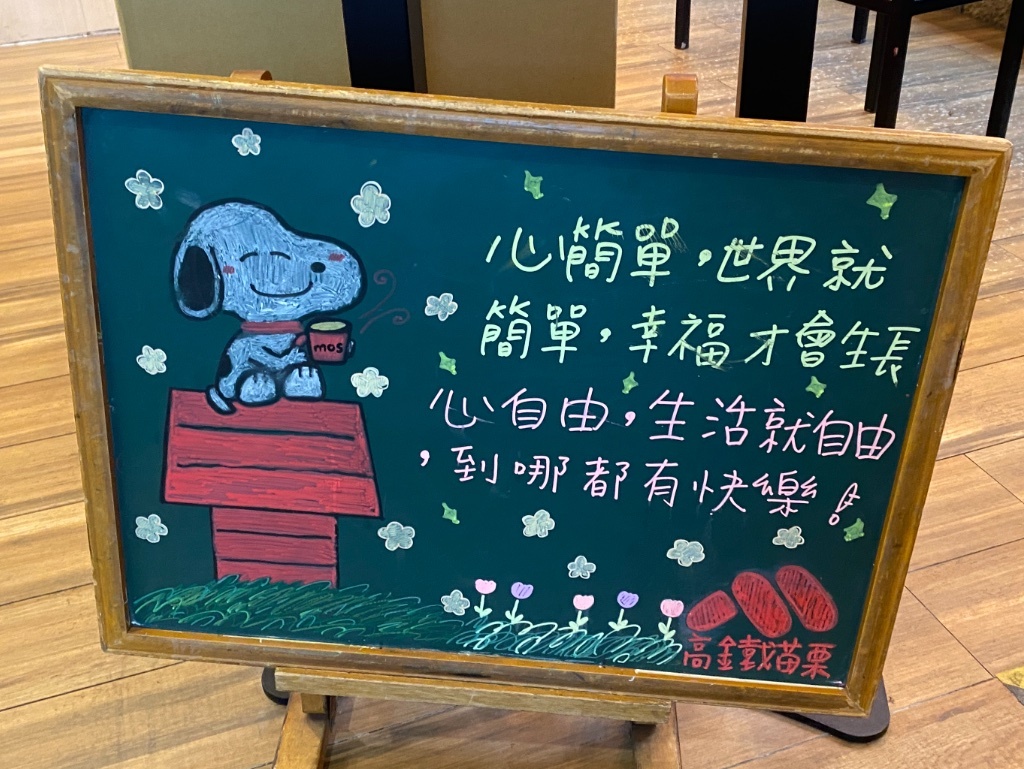 mos
心簡單，世界就
簡單，幸福才會生長
心自由，生活就自由
，到哪都有快樂！
高鐵苗栗